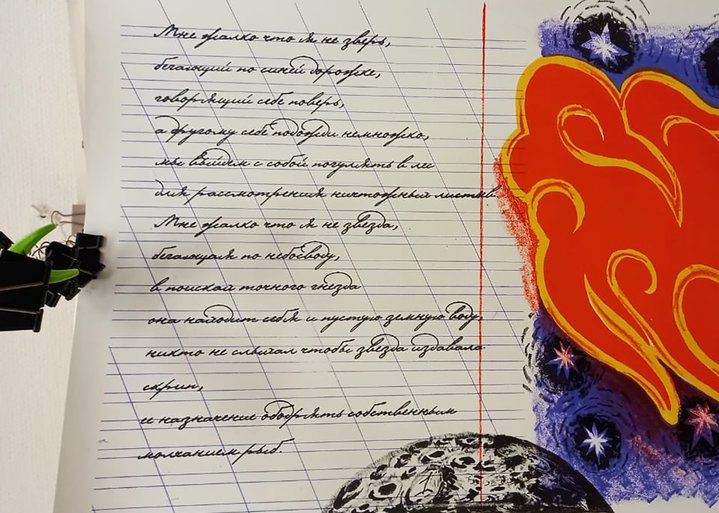 Мне жалко что я не зверь,
бегающий по синей дорожке,
говорящий себе поверь,
а другому себе подожди немножко,
мы выйдем с собой погулять в лес
для рассмотрения ничтожных листьев.
Мне жалко что я не звезда,
бегающая по небосводу,
в поисках точного гнезда
она находит себя и пустую земную воду,
никто не слыхал чтобы звезда издавала
скрип,
ее назначение ободрять собственным
молчанием рыб.